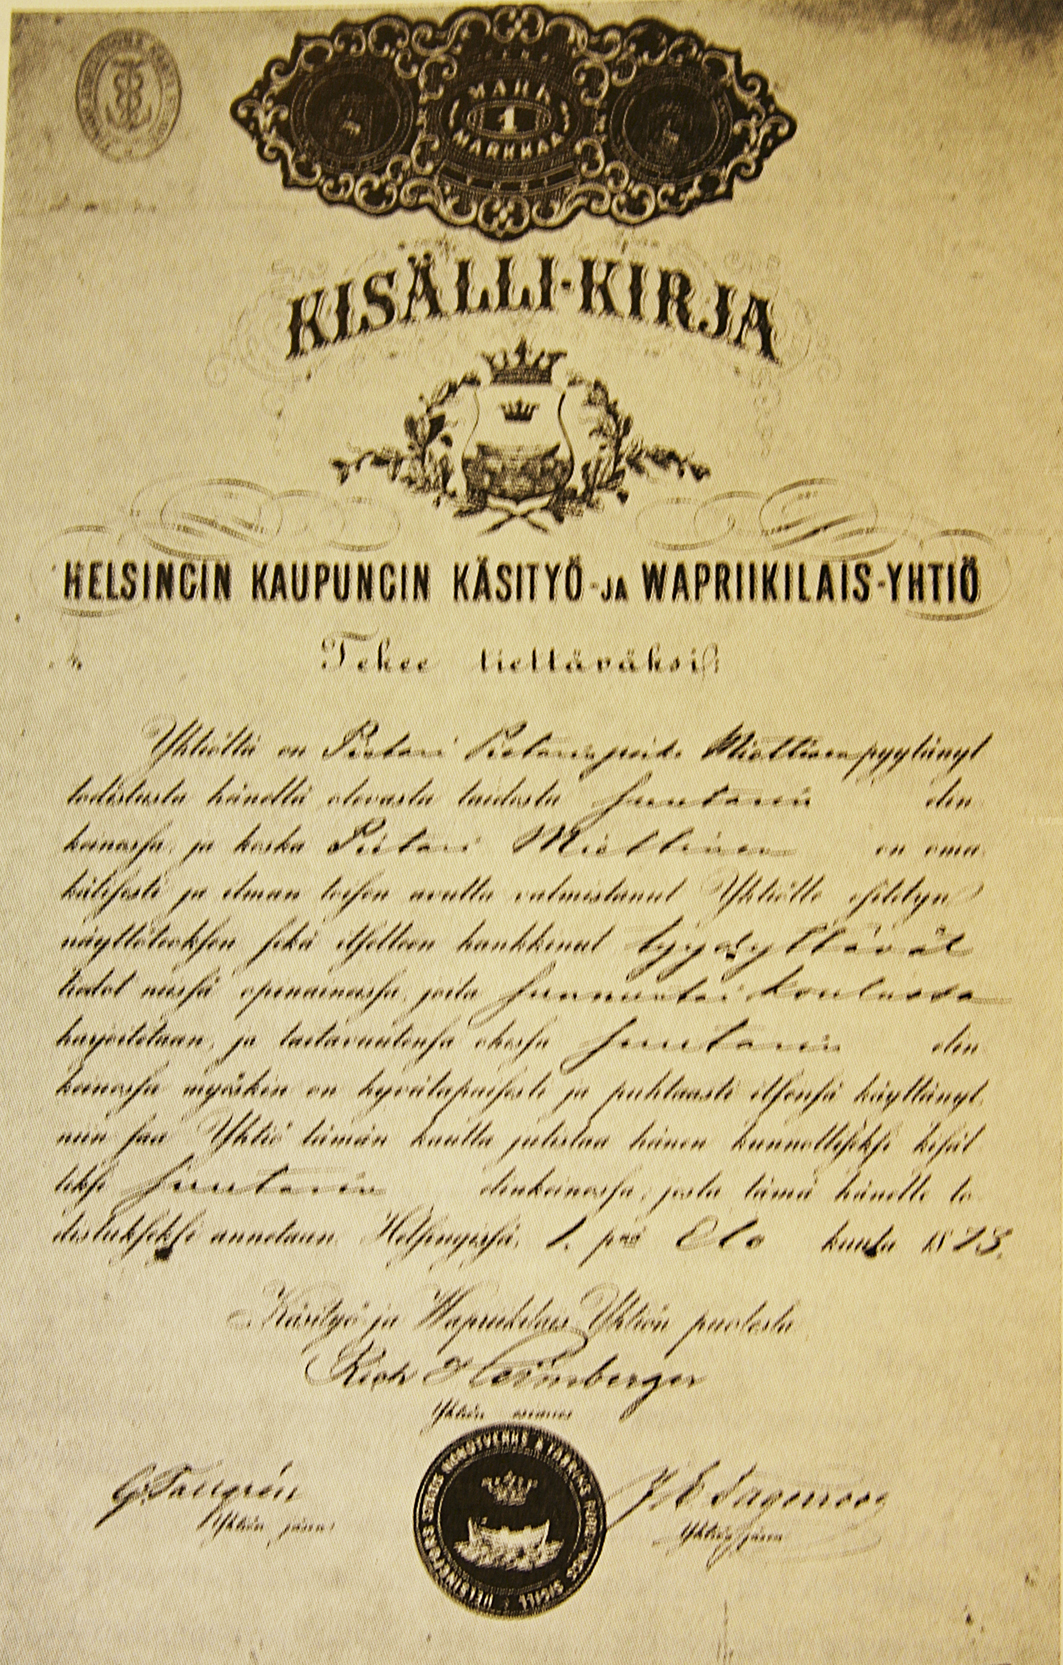 MARK
1
MARKKAA
KISÄLLI-KIRJA
HELSINGIN KAUPUNGIN KÄSITYÖ-JA WAPRIIKILAIS-YHTIÖ
Tekee tiettäväksi:
Yhtiöltä on Pietari Pietarinpoika Miettinen pyytänyt
todistusta hänellä olevasta taidosta suutarin elin-
keinossa, ja koska Pietari Miettinen on oma-
kätisesti ja ilman toisen avutta valmistanut Yhtiölle esitetyn
näyttöteoksen sekä itselleen hankkinut tyydyttävät
tiedot niissä opinaineissa, joita sunnuntai koulussa
harjoitetaan, ja taitavuutensa ohessa suutarin elin-
keinossa myöskin on hyvätapaisesti ja puhtaasti itsensä käyttänyt,
niin saa Yhtiö tämän kautta julistaa hänen kunnolliseksi kisäl-
liksi suutarin elinkeinossa, josta tämä hänelle to-
distukseksi annetaan. Helsingissä, 1. p:nä Elo kuuta 1873.
Käsityö ja Wapriikilais Yhtiön puolesta
Heimberger
Yhtiön esimies
G. Tallgrén
Yhtiön jäsen
Yhtiön jäsen
HELSINGFORS STADS HANDTVERKS & FABRIKS SIGILL